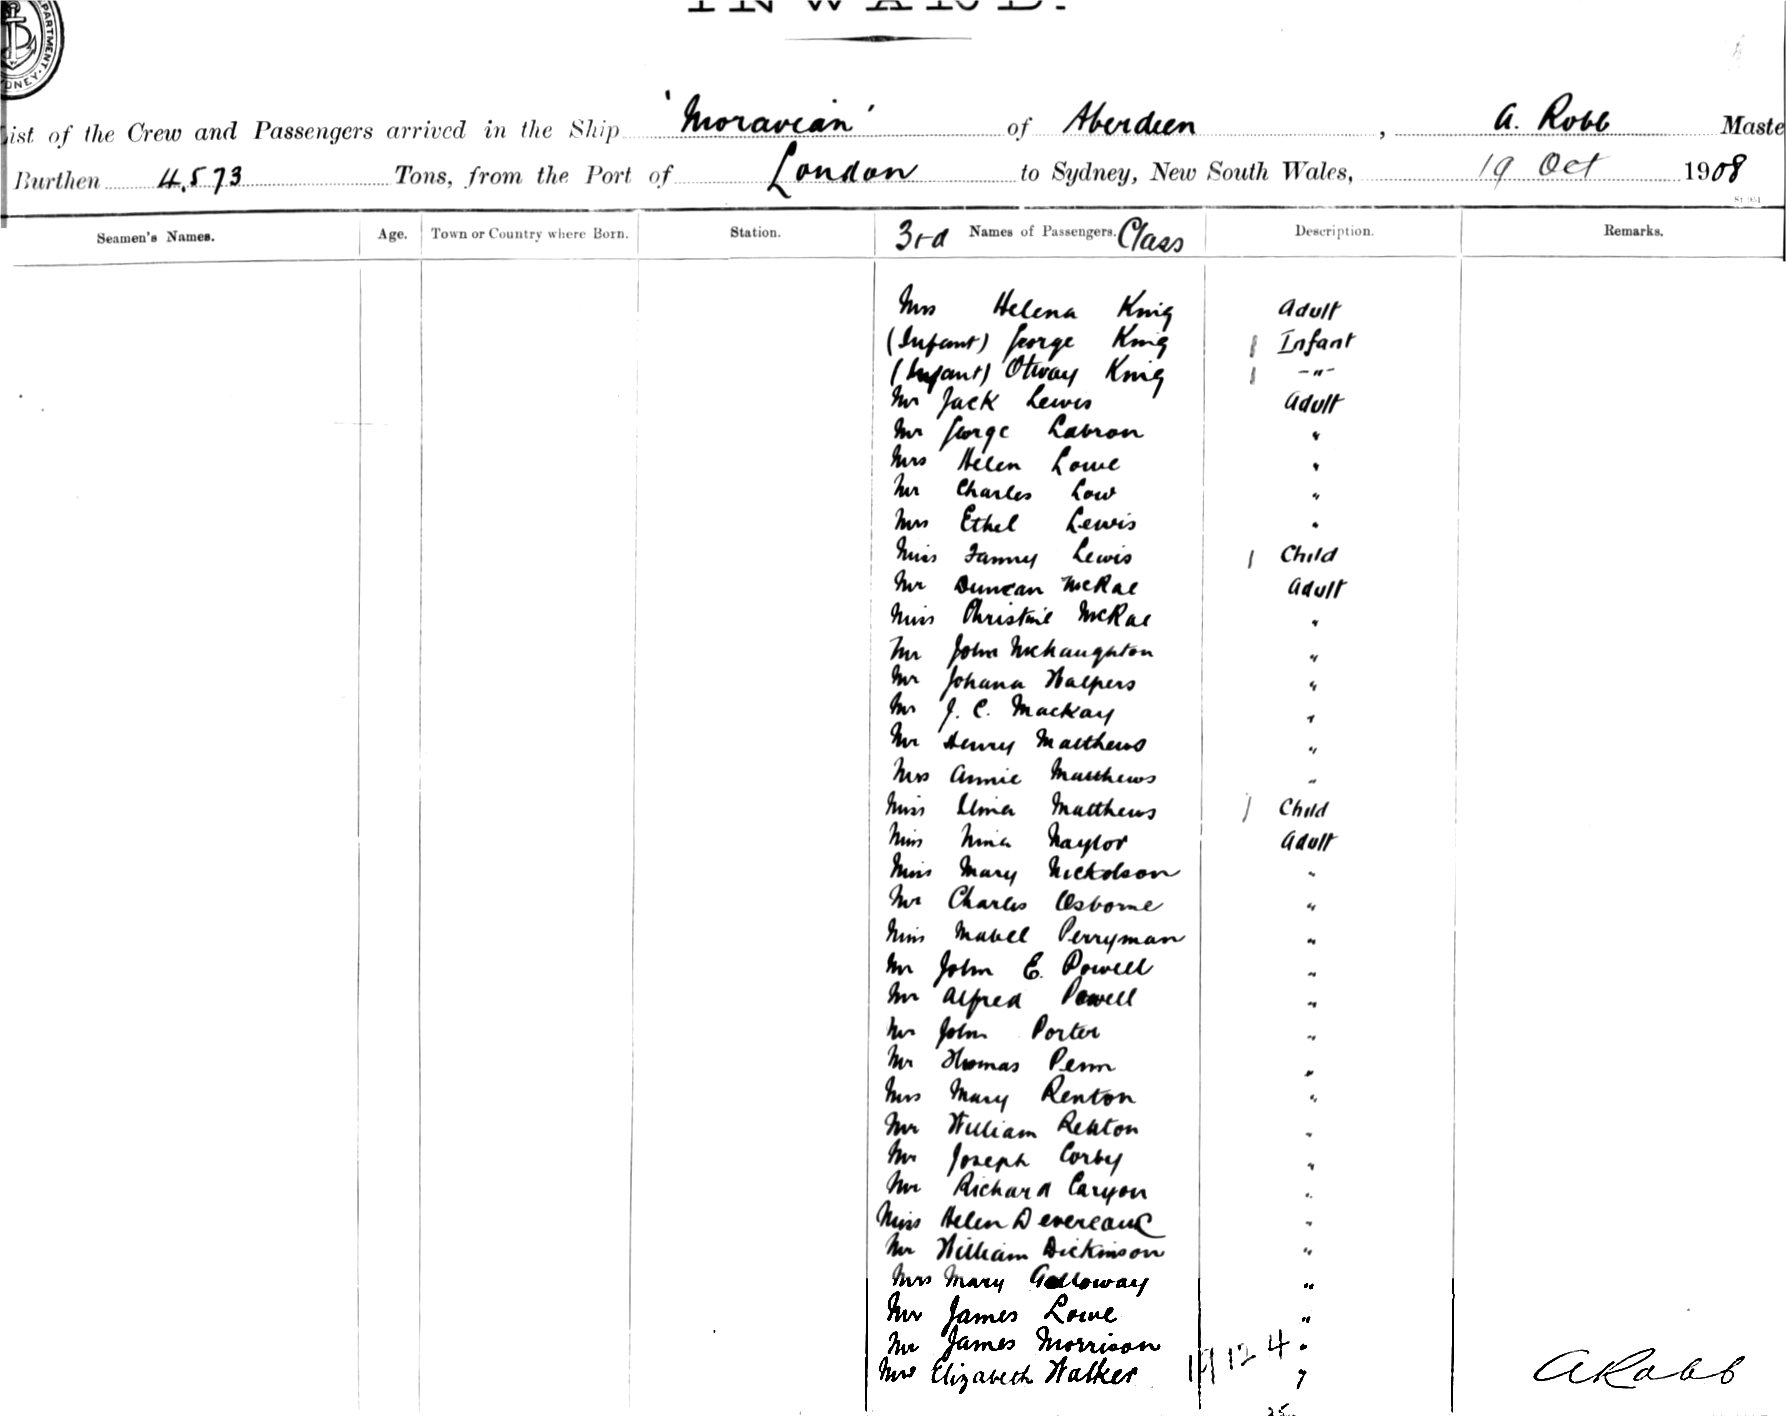 PARTMENT. DNEY
INWARD.
List of the Crew and Passengers arrived in the Ship 'Moravian' of Aberdeen, A. Robb Maste
Burthen 4,573 Tons, from the Port of London to Sydney, New South Wales, 19 Oct 1908
Seamen's Names. Age. Town or Country where Born. Station. 3rd Names of Passengers. Class Description. Remarks.
Mrs Helena King Adult
(Infant) George King 1 Infant
(Infant) Otway King 1 -"-
Mr Jack Lewis Adult
Mr George Labron "
Mrs Helen Lowe "
Mr Charles Low "
Mrs Ethel Lewis "
Miss Fanny Lewis 1 Child
Mr Duncan McRae Adult
Miss Christine McRae "
Mr John McNaughton "
Mr Johana Walpers "
Mr J. C. Mackay "
Mr Henry Matthews "
Mrs Annie Matthews "
Miss Elma Matthews 1 Child
Miss Nina Naylor Adult
Miss Mary Nickolson "
Mr Charles Osborne "
Miss Mabel Perryman "
Mr John E. Powell "
Mr Alfred Powell "
Mr John Porter "
Mr Thomas Penn "
Mrs Mary Renton "
Mr William Renton "
Mr Joseph Corby "
Mr Richard Caryon "
Miss Helen Devereaux "
Mr William Dickinson "
Mrs Mary Galloway "
Mr James Lowe "
Mr James Morrison "
Mrs Elizabeth Walker 19 12 4 "
A Robb
35